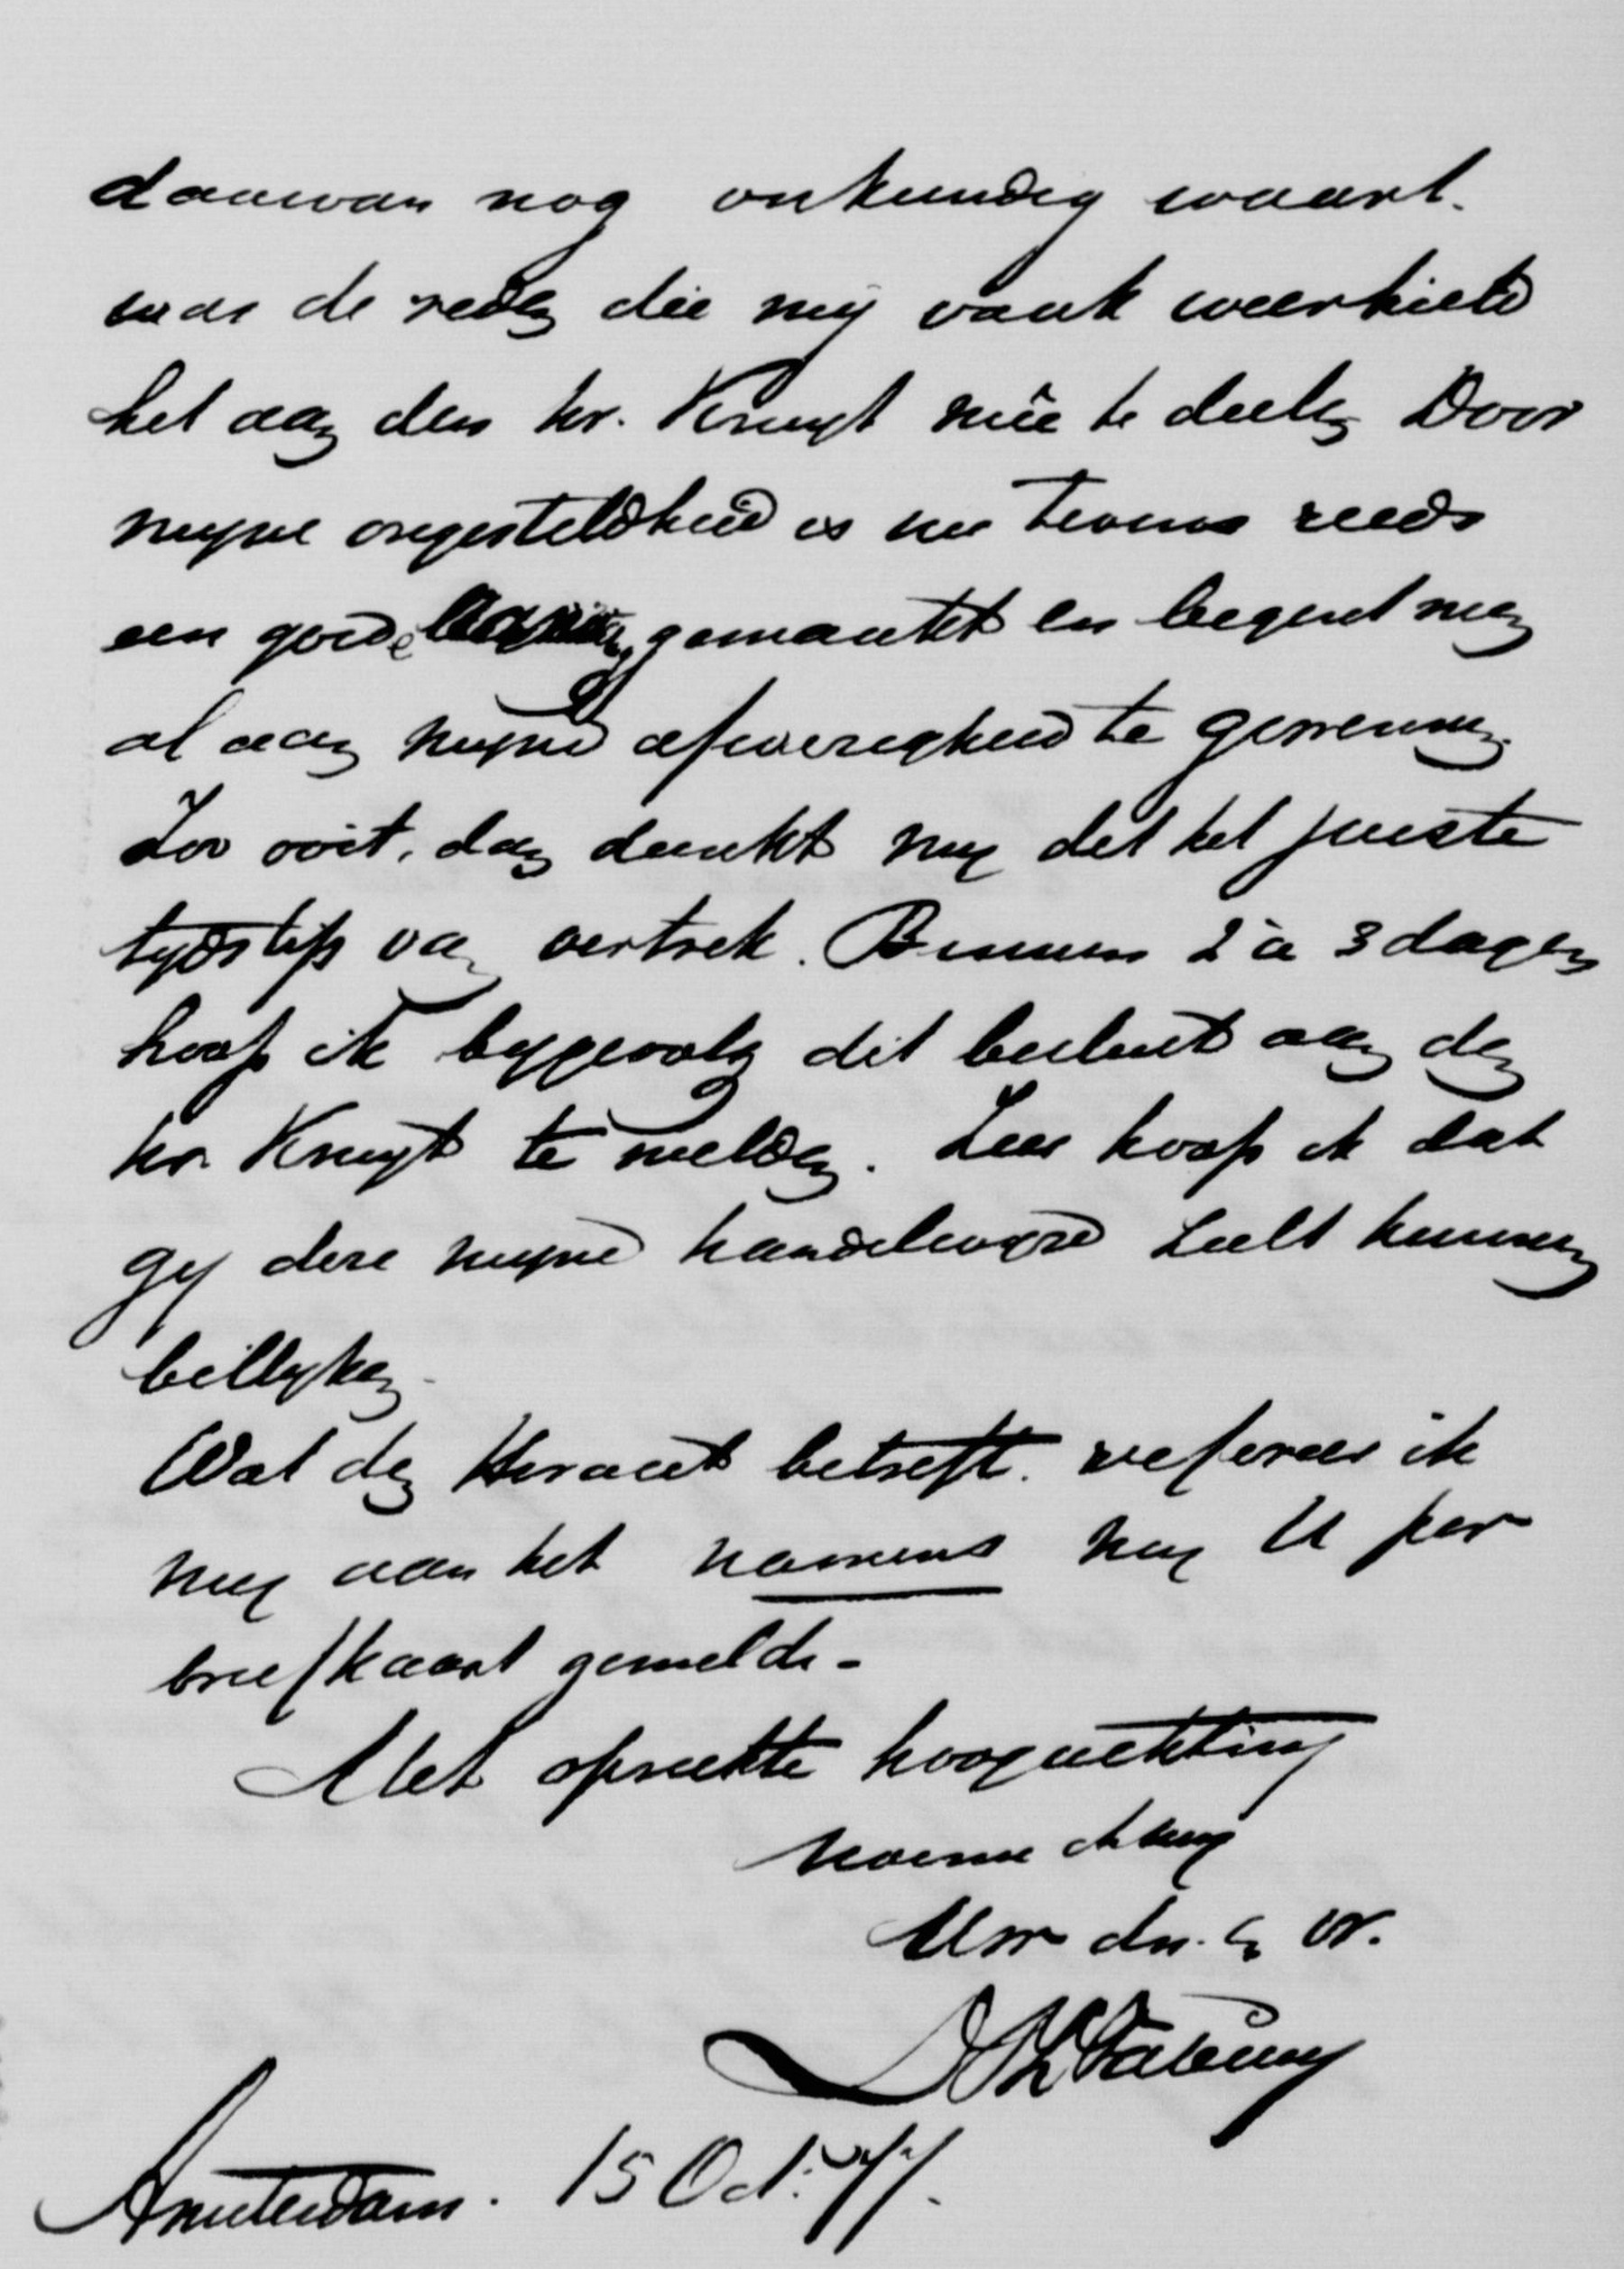 daarvan nog onkundig waart.
was de reden die mij vaak weerhield
het aan den hr. Kruyt meê te deelen Door
mijne ongesteldheid is nu tevens reeds
een goede gemaakt en begint men
al aan mijne afwezigheid te gewennen.
Zoo ooit, dan dunkt mij dit het juiste
tijdstip van vertrek. Binnen 2 à 3 dagen
hoop ik bijgevolg dit besluit aan den
hr. Kruyt te melden. Zeer hoop ik dat
gij deze mijne handelwijze zult kunnen
billijken.
Wat den Heraut betreft. refereer ik
mij aan het namens mij U per
briefkaart gemelde.-
Met oprechte hoogachting
noem ik mij
Uw dn. en vr.
Amsterdam. 15 Oct. 77.